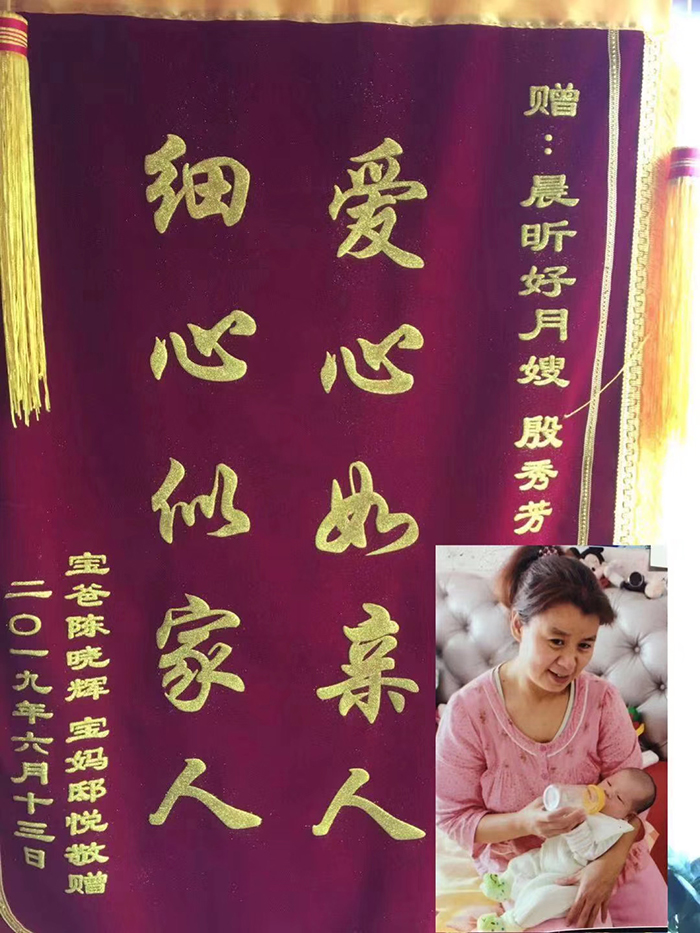 赠：晨昕好月嫂 殷秀芳
爱心如亲人
细心似家人
宝爸陈晓辉 宝妈邸悦敬赠
二〇一九年六月十三日